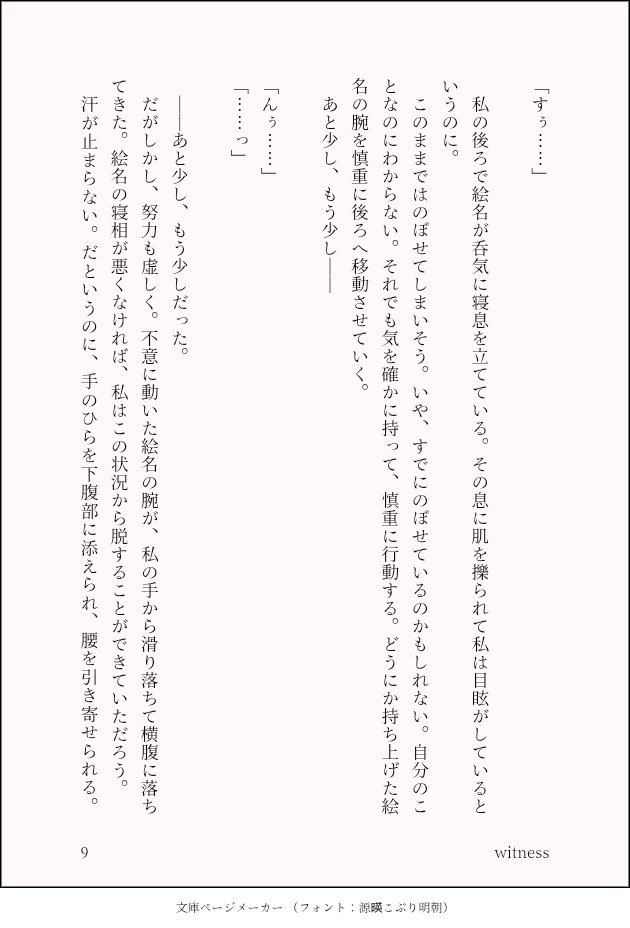 「すぅ……」
　私の後ろで絵名が呑気に寝息を立てている。その息に肌を擽られて私は目眩がしていると
いうのに。
　このままではのぼせてしまいそう。いや、すでにのぼせているのかもしれない。自分のこ
となのにわからない。それでも気を確かに持って、慎重に行動する。どうにか持ち上げた絵
名の腕を慎重に後ろへ移動させていく。
　あと少し、もう少し――
「んぅ……」
「……っ」
　――あと少し、もう少しだった。
　だがしかし、努力も虚しく。不意に動いた絵名の腕が、私の手から滑り落ちて横腹に落ち
てきた。絵名の寝相が悪くなければ、私はこの状況から脱することができていただろう。
　汗が止まらない。だというのに、手のひらを下腹部に添えられ、腰を引き寄せられる。
9
witness
文庫ページメーカー（フォント：源暎こぶり明朝）